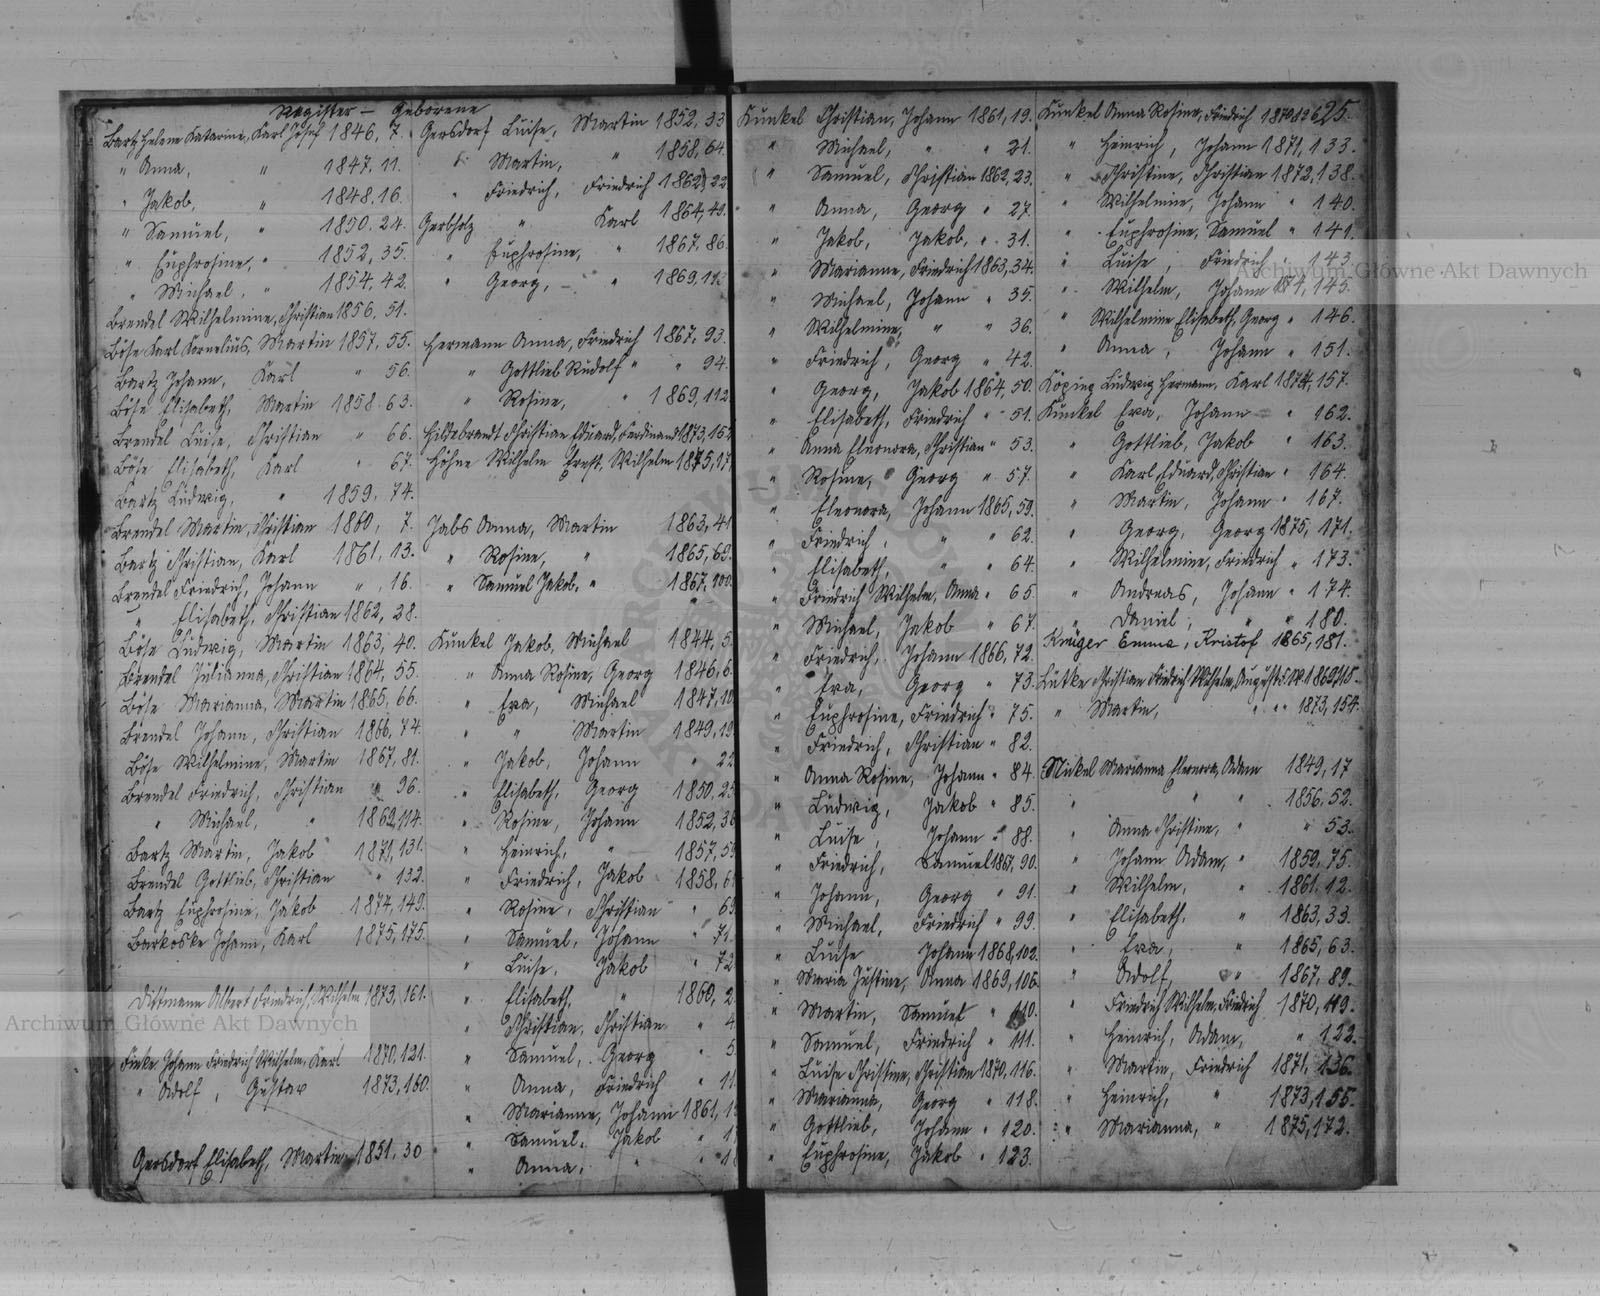 Register – Geborene
Bartz Helene Katarine, Karl Josef 1846, 7.
" Anna, " 1847. 11.
" Jakob, " 1848. 16.
" Samuel, " 1850. 24.
" Euphrosine, " 1852, 35.
" Michael, " 1854, 42.
Brendel Wilhelmine, Christian 1856, 51.
Böse Karl Kornelius, Martin 1857, 55.
Bartz Johann, Karl " 56.
Böse Elisabeth, Martin 1858. 63.
Brendel Luise, Christian " 66.
Böse Elisabeth, Karl " 67.
Bartz Ludwig, " 1859, 74.
Brendel Martin, Christian 1860, 7.
Bartz Christian, Karl 1861, 13.
Brendel Friedrich, Johann " , 16.
" Elisabeth, Christian 1862, 28.
Böse Ludwig, Martin 1863, 40.
Brendel Julianna, Christian 1864, 55.
Böse Marianna, Martin 1865, 66.
Brendel Johann, Christian 1866, 74.
Böse Wilhelmine, Martin 1867, 81.
Brendel Friedrich, Christian " 96.
" Michael, " 1869, 114.
Bartz Martin, Jakob 1871, 131.
Brendel Gottlieb, Christian " 132.
Bartz Euphrosine, Jakob 1874, 149.
Barkoske Johann, Karl 1875, 175.
Dittmann Albert Friedrich, Wilhelm 1873, 161.
Finke Johann Friedrich Wilhelm, Karl 1870, 121.
" Adolf, Gustav 1873, 160.
Gersdorf Elisabeth, Martin 1851. 30
Gersdorf Luise, Martin 1852, 33
" Martin, " 1858, 64.
" Friedrich, Friedrich 1862, 22
Gerbholz " Karl 1864, 49.
" Euphrosine, " 1867. 86.
" Georg, " 1869, 113
Hermann Anna, Friedrich 1867, 93.
" Gottlieb Rudolf " " 94.
" Rosine, " 1869, 112.
Hildebrandt Christian Eduard, Ferdinand 1873, 152
Höhne Wilhelm Ernst, Wilhelm 1875, 17
Jabs Anna, Martin 1863, 41
" Rosine, " 1865, 69.
" Samuel Jakob, " 1867, 100.
Kunkel Jakob, Michael 1844, 5.
" Anna Rosine, Georg 1846, 6.
" Eva, Michael 1847, 10
" " Martin 1849, 19
" Jakob, Johann " 22
" Elisabeth, Georg 1850, 25
" Rosine, Johann 1852, 36
" Heinrich, " 1857, 59
" Friedrich, Jakob 1858, 61
" Rosine, Christian " 69.
" Samuel, Johann " 71.
" Luise, Jakob " 72
" Elisabeth, " 1860, 2.
" Christian, Christian " 4.
" Samuel, Georg " 5.
" Anna, Friedrich " 11.
" Marianne, Johann 1861, 1
" Samuel, Jakob " 1
" Anna, " " 1
Kunkel Christian, Johann 1861, 19.
" Michael, " " 21.
" Samuel, Christian 1862, 23.
" Anna, Georg " 27.
" Jakob, Jakob, " 31.
" Marianne, Friedrich 1863, 34.
" Michael, Johann " 35.
" Wilhelmine, " " 36.
" Friedrich, Georg " 42.
" Georg, Jakob 1864, 50.
" Elisabeth, Friedrich " 51.
" Anna Eleonora, Christian " 53.
" Rosine, Georg " 57.
" Eleonora, Johann 1865, 59.
" Friedrich, " " 62.
" Elisabeth, " " 64.
" Friedrich Wilhelm, Anna " 65.
" Michael, Jakob " 67.
" Friedrich, Johann 1866, 72.
" Eva, Georg " 73.
" Euphrosine, Friedrich " 75.
" Friedrich, Christian " 82.
" Anna Rosine, Johann " 84.
" Ludwig, Jakob " 85.
" Luise, Johann " 88.
" Friedrich, Samuel 1867, 90.
" Johann, Georg " 91.
" Michael, Friedrich " 99.
" Luise Johann 1868, 102.
" Maria Justine, Anna 1869, 106.
" Martin, Samuel " 110.
" Samuel, Friedrich " 111.
" Luise Christine, Christian 1870, 116.
" Marianna, Georg " 118.
" Gottlieb, Johann " 120.
" Euphrosine, Jakob " 123.
Kunkel Anna Rosine, Friedrich 1870 625.
" Heinrich, Johann 1871, 133.
" Christine, Christian 1872, 138.
" Wilhelmine, Johann " 140.
" Euphrosine, Samuel " 141.
" Luise, Friedrich " 143.
" Wilhelm, Johann 1874, 145.
" Wilhelmine Elisabeth, Georg " 146.
" Anna, Johann " 151.
Köping Ludwig Hermann, Karl 1874, 157.
Kunkel Eva, Johann " 162.
" Gottlieb, Jakob " 163.
" Karl Eduard, Christian " 164.
" Martin, Johann " 167.
" Georg, Georg 1875, 171.
" Wilhelmine, Friedrich " 173.
" Andreas, Johann " 174.
" Daniel, " " 180.
Krüger Emma, Kristof 1865, 181.
Lutke Christian Friedrich Wilhelm, August 1869, 115.
" Martin, " " 1873, 154.
Nickel Marianna Eleonora, Adam 1849, 17
" " " 1856, 52.
" Anna Christine, " " 53.
" Johann Adam, " 1859, 75.
" Wilhelm, " 1861. 12.
" Elisabeth, " 1863, 33.
" Eva, " 1865, 63.
" Adolf, " 1867, 89.
" Friedrich Wilhelm, Friedrich 1870, 119.
" Heinrich, Adam, " 122.
" Martin, Friedrich 1871, 136.
" Heinrich, " 1873, 155.
" Marianna, " 1875, 172.
Archiwum Główne Akt Dawnych
Archiwum Główne Akt Dawnych